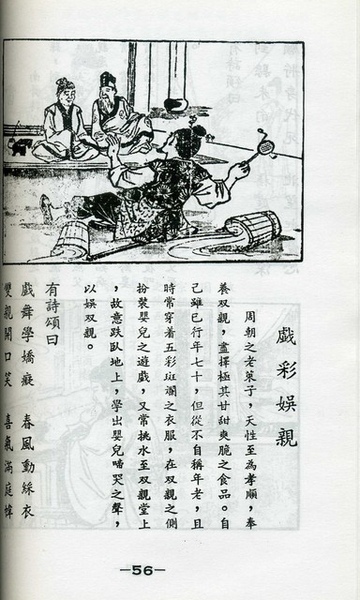 戲彩娛親
周朝之老萊子，天性至為孝順，奉
養双親，盡擇極其甘甜爽脆之食品。自
己雖已行年七十，但從不自稱年老，且
時常穿着五彩斑斕之衣服，在双親之側
扮裝嬰兒之遊戲，又常挑水至双親堂上
，故意跌臥地上，學出嬰兒啼哭之聲，
以娛双親。
有詩頌曰
戲舞學嬌癡　春風動綵衣
雙親開口笑　喜氣滿庭幃
—56—